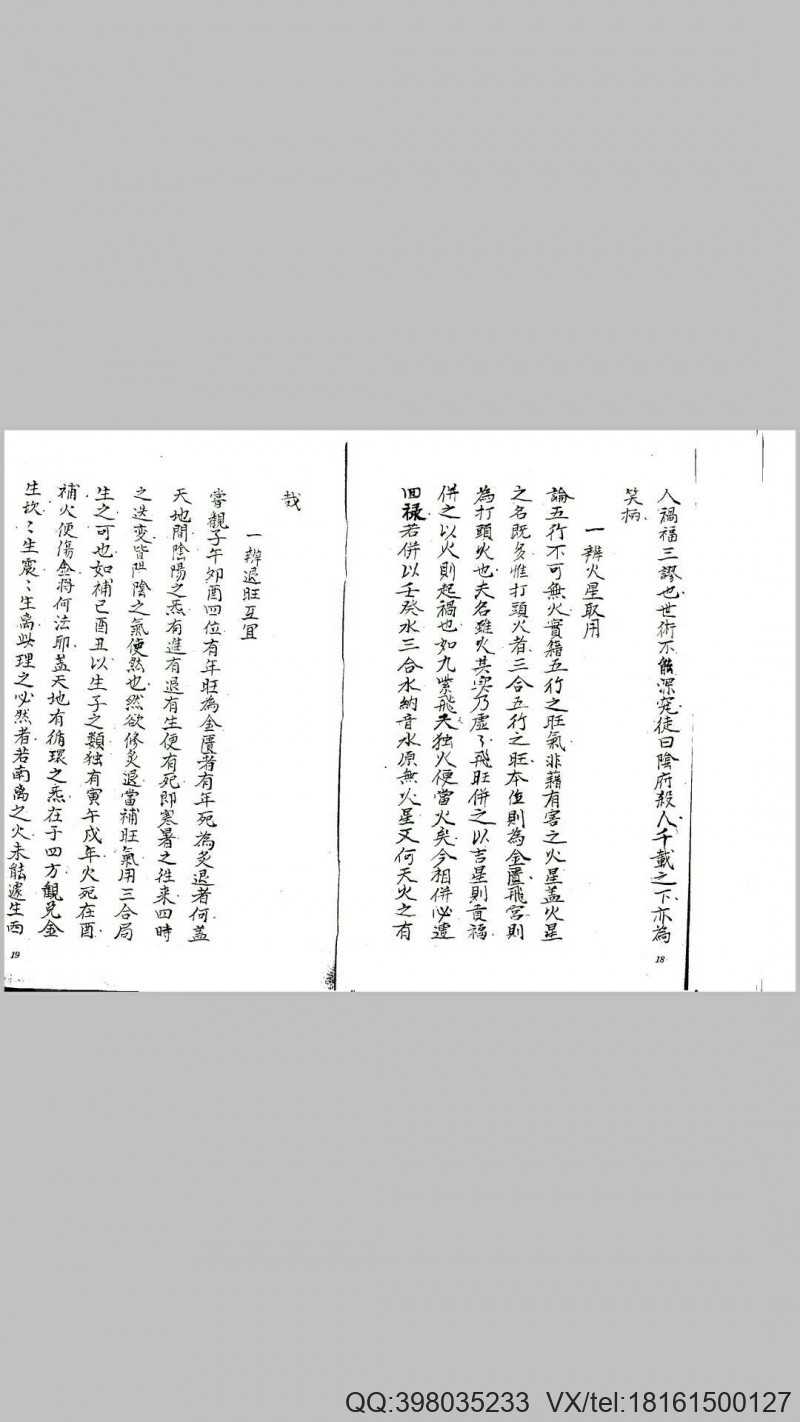 人禍福三謬也世術不能深究徒曰陰府殺人千載之下亦為
笑柄
一辨火星取用
論五行不可無火實籍五行之旺氣非藉有客之火星盖火星
之名既多惟打頭火者三合五行之旺本位則為金匱飛宮則
為打頭火也夫名雖火其實乃虛〻飛旺併之以吉星則責福
併之以火則起禍也如九紫飛天独火便當火矣今相併必遭
回禄若併以壬癸水三合水納音水原無火星又何天火之有
18
哉
一辨退旺互宜
嘗觀子午夘酉四位有年旺為金匱者有年死為炙退者何盖
天地間陰陽之炁有進有退有生便有死即寒暑之徃来四時
之迭变皆阻陰之氣使然也然欲修炙退當補旺氣用三合局
生之可也如補己酉丑以生子之類独有寅午戌年火死在酉
補火便傷金将何法耶盖天地有循環之炁在于四方觀兑金
生坎〻生震〻生离此理之必然者若南离之火未能遽生西
19
QQ:398035233 VX/tel:18161500127